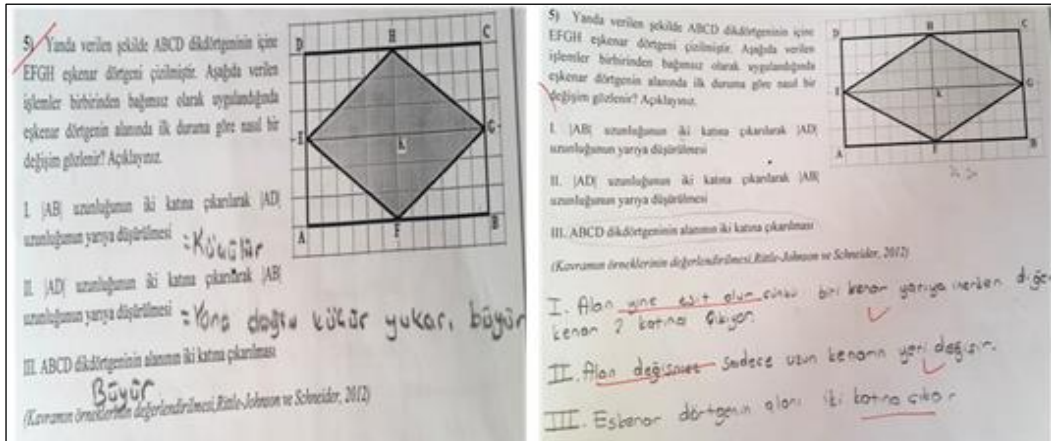 5) Yanda verilen şekilde ABCD dikdörtgeninin içine
EFGH eşkenar dörtgeni çizilmiştir. Aşağıda verilen
işlemler birbirinden bağımsız olarak uygulandığında
eşkenar dörtgenin alanında ilk duruma göre nasıl bir
değişim gözlenir? Açıklayınız.
D H C
E K G
A F B
I. |AB| uzunluğunun iki katına çıkarılarak |AD|
uzunluğunun yarıya düşürülmesi = Küçülür
II. |AD| uzunluğunun iki katına çıkarılarak |AB|
uzunluğunun yarıya düşürülmesi = Yana doğru küçür yukarı büyür
III. ABCD dikdörtgeninin alanının iki katına çıkarılması
Büyür
(Kavramın örneklerinin değerlendirilmesi, Rittle-Johnson ve Schneider, 2012)
5) Yanda verilen şekilde ABCD dikdörtgeninin içine
EFGH eşkenar dörtgeni çizilmiştir. Aşağıda verilen
işlemler birbirinden bağımsız olarak uygulandığında
eşkenar dörtgenin alanında ilk duruma göre nasıl bir
değişim gözlenir? Açıklayınız.
D H C
E K G
A F B
I. |AB| uzunluğunun iki katına çıkarılarak |AD|
uzunluğunun yarıya düşürülmesi
II. |AD| uzunluğunun iki katına çıkarılarak |AB|
uzunluğunun yarıya düşürülmesi
III. ABCD dikdörtgeninin alanının iki katına çıkarılması
(Kavramın örneklerinin değerlendirilmesi, Rittle-Johnson ve Schneider, 2012)
I. Alan yine eşit olur çünkü biri kenar yarıya inerken diğer
kenar 2 katına çıkıyor.
II. Alan değişmez sadece uzun kenarın yeri değişir.
III. Eşkenar dörtgenin alanı iki katına çıkar